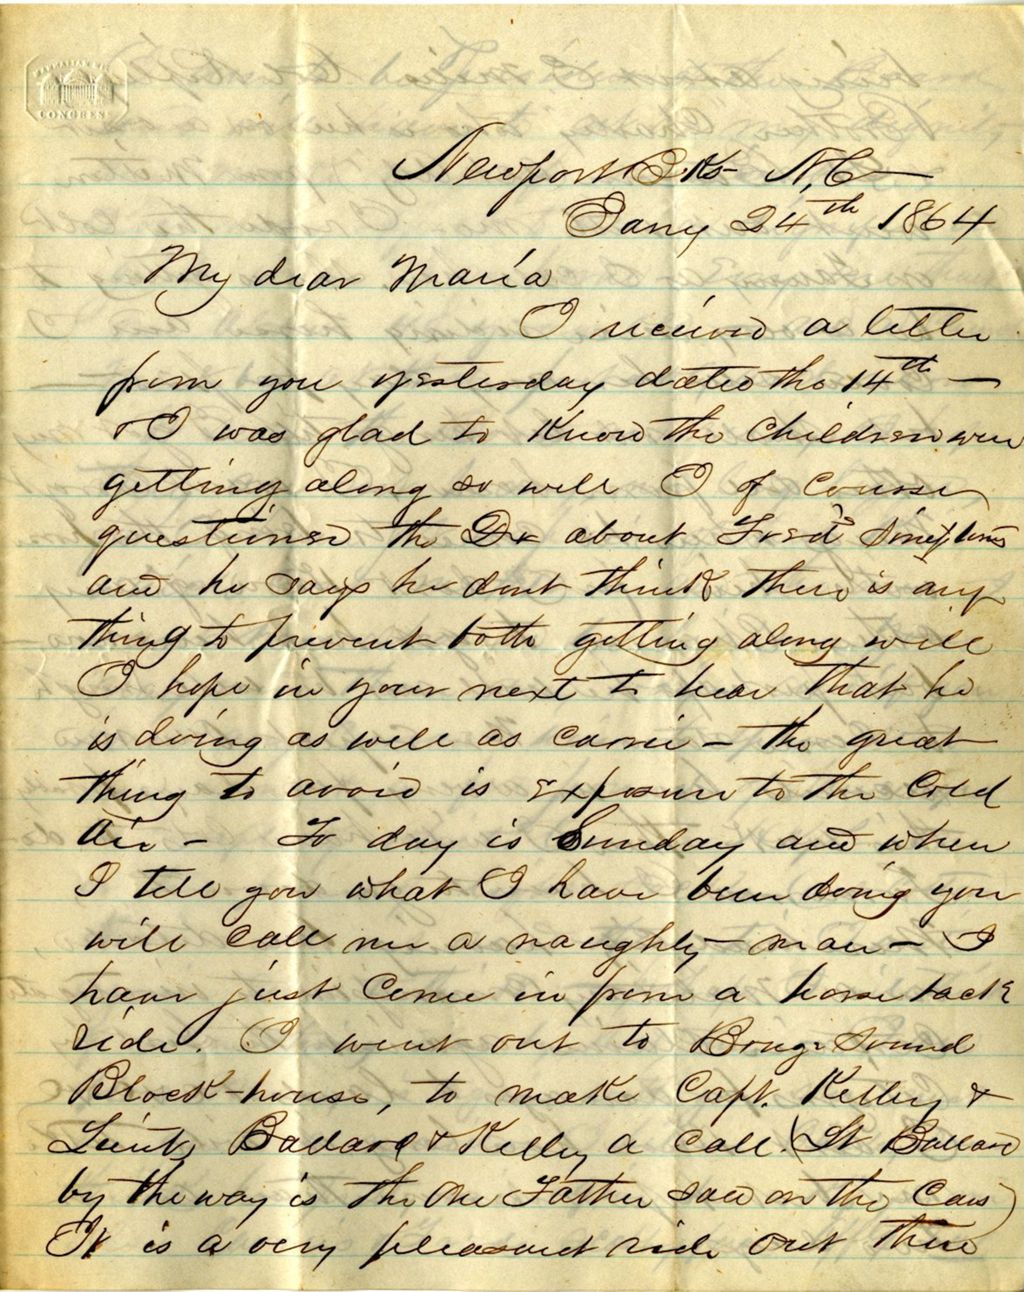 CONGRESS
Newport Bks- N.C-
Jany 24th 1864
My dear Maria
I received a letter
from you yesterday dated the 14th -
& I was glad to know the children were
getting along so well I of course
questioned the Dr about Fred's
and he says he dont think there is any
thing to prevent both getting along well
I hope in your next to hear that he
is doing as well as Carrie - the great
thing to avoid is exposure to the cold
air - To day is Sunday and when
I tell you what I have been doing you
will call me a naughty man - I
have just come in from a horse back
ride. I went out to Bouge Sound
Block-house, to make Capt. Kelley &
Lieuts Ballard & Kelley a call. (Lt Ballard
by the way is the one Father saw on the Cars)
It is a very pleasant ride out there